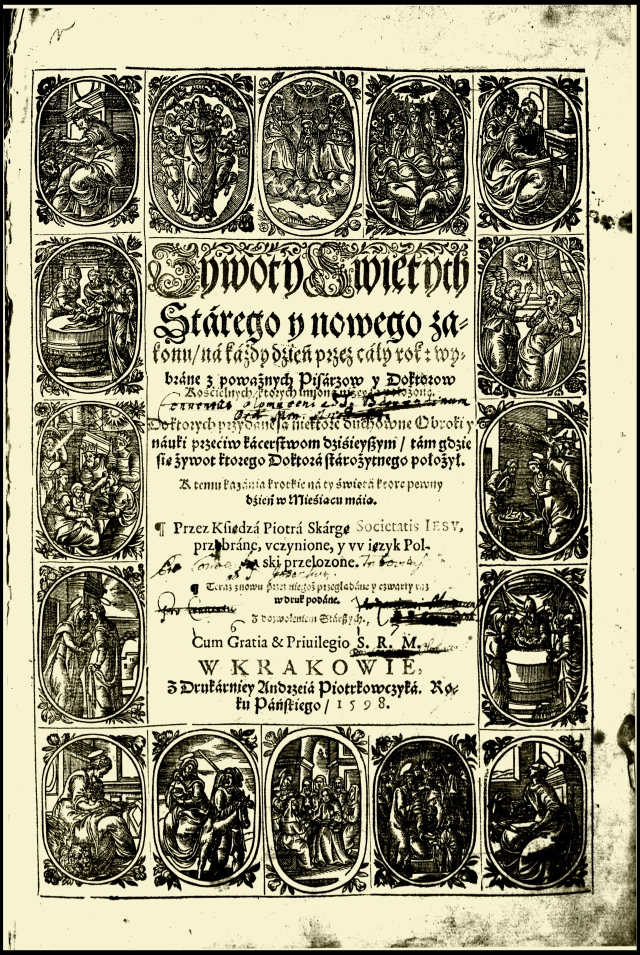 Zywoty Swiętych
Stárego y nowego za-
konu / ná káżdy dźień przez cáły rok: wy-
bráne z poważnych Pisárzow y Doktorow
Kośćielnych, ktorych imioná
Do ktorych przydáne są niektore duchowne Obroki y
náuki przećiw kácerstwom dźiśieyszym / tám gdźie
sie żywot ktorego Doktorá stárożytnego położył.
K temu kazánia krotkie ná ty świętá ktore pewny
dźień w Mieśiącu máią.
¶ Przez Kśiędzá Piotrá Skárgę Societatis IESV,
przebráne, vczynione, y vv ięzyk Pol-
ski przełozone.
¶ Teraz znowu przez niegoż przeglądáne y czwarty raz
w druk podáne.
Z dozwoleniem Stárszych.
Cum Gratia & Priuilegio S. R. M.
W KRAKOWIE,
Z Drukárniey Andrzeiá Piotrkowczyká. Ro-
ku Páńskiego / 1598.